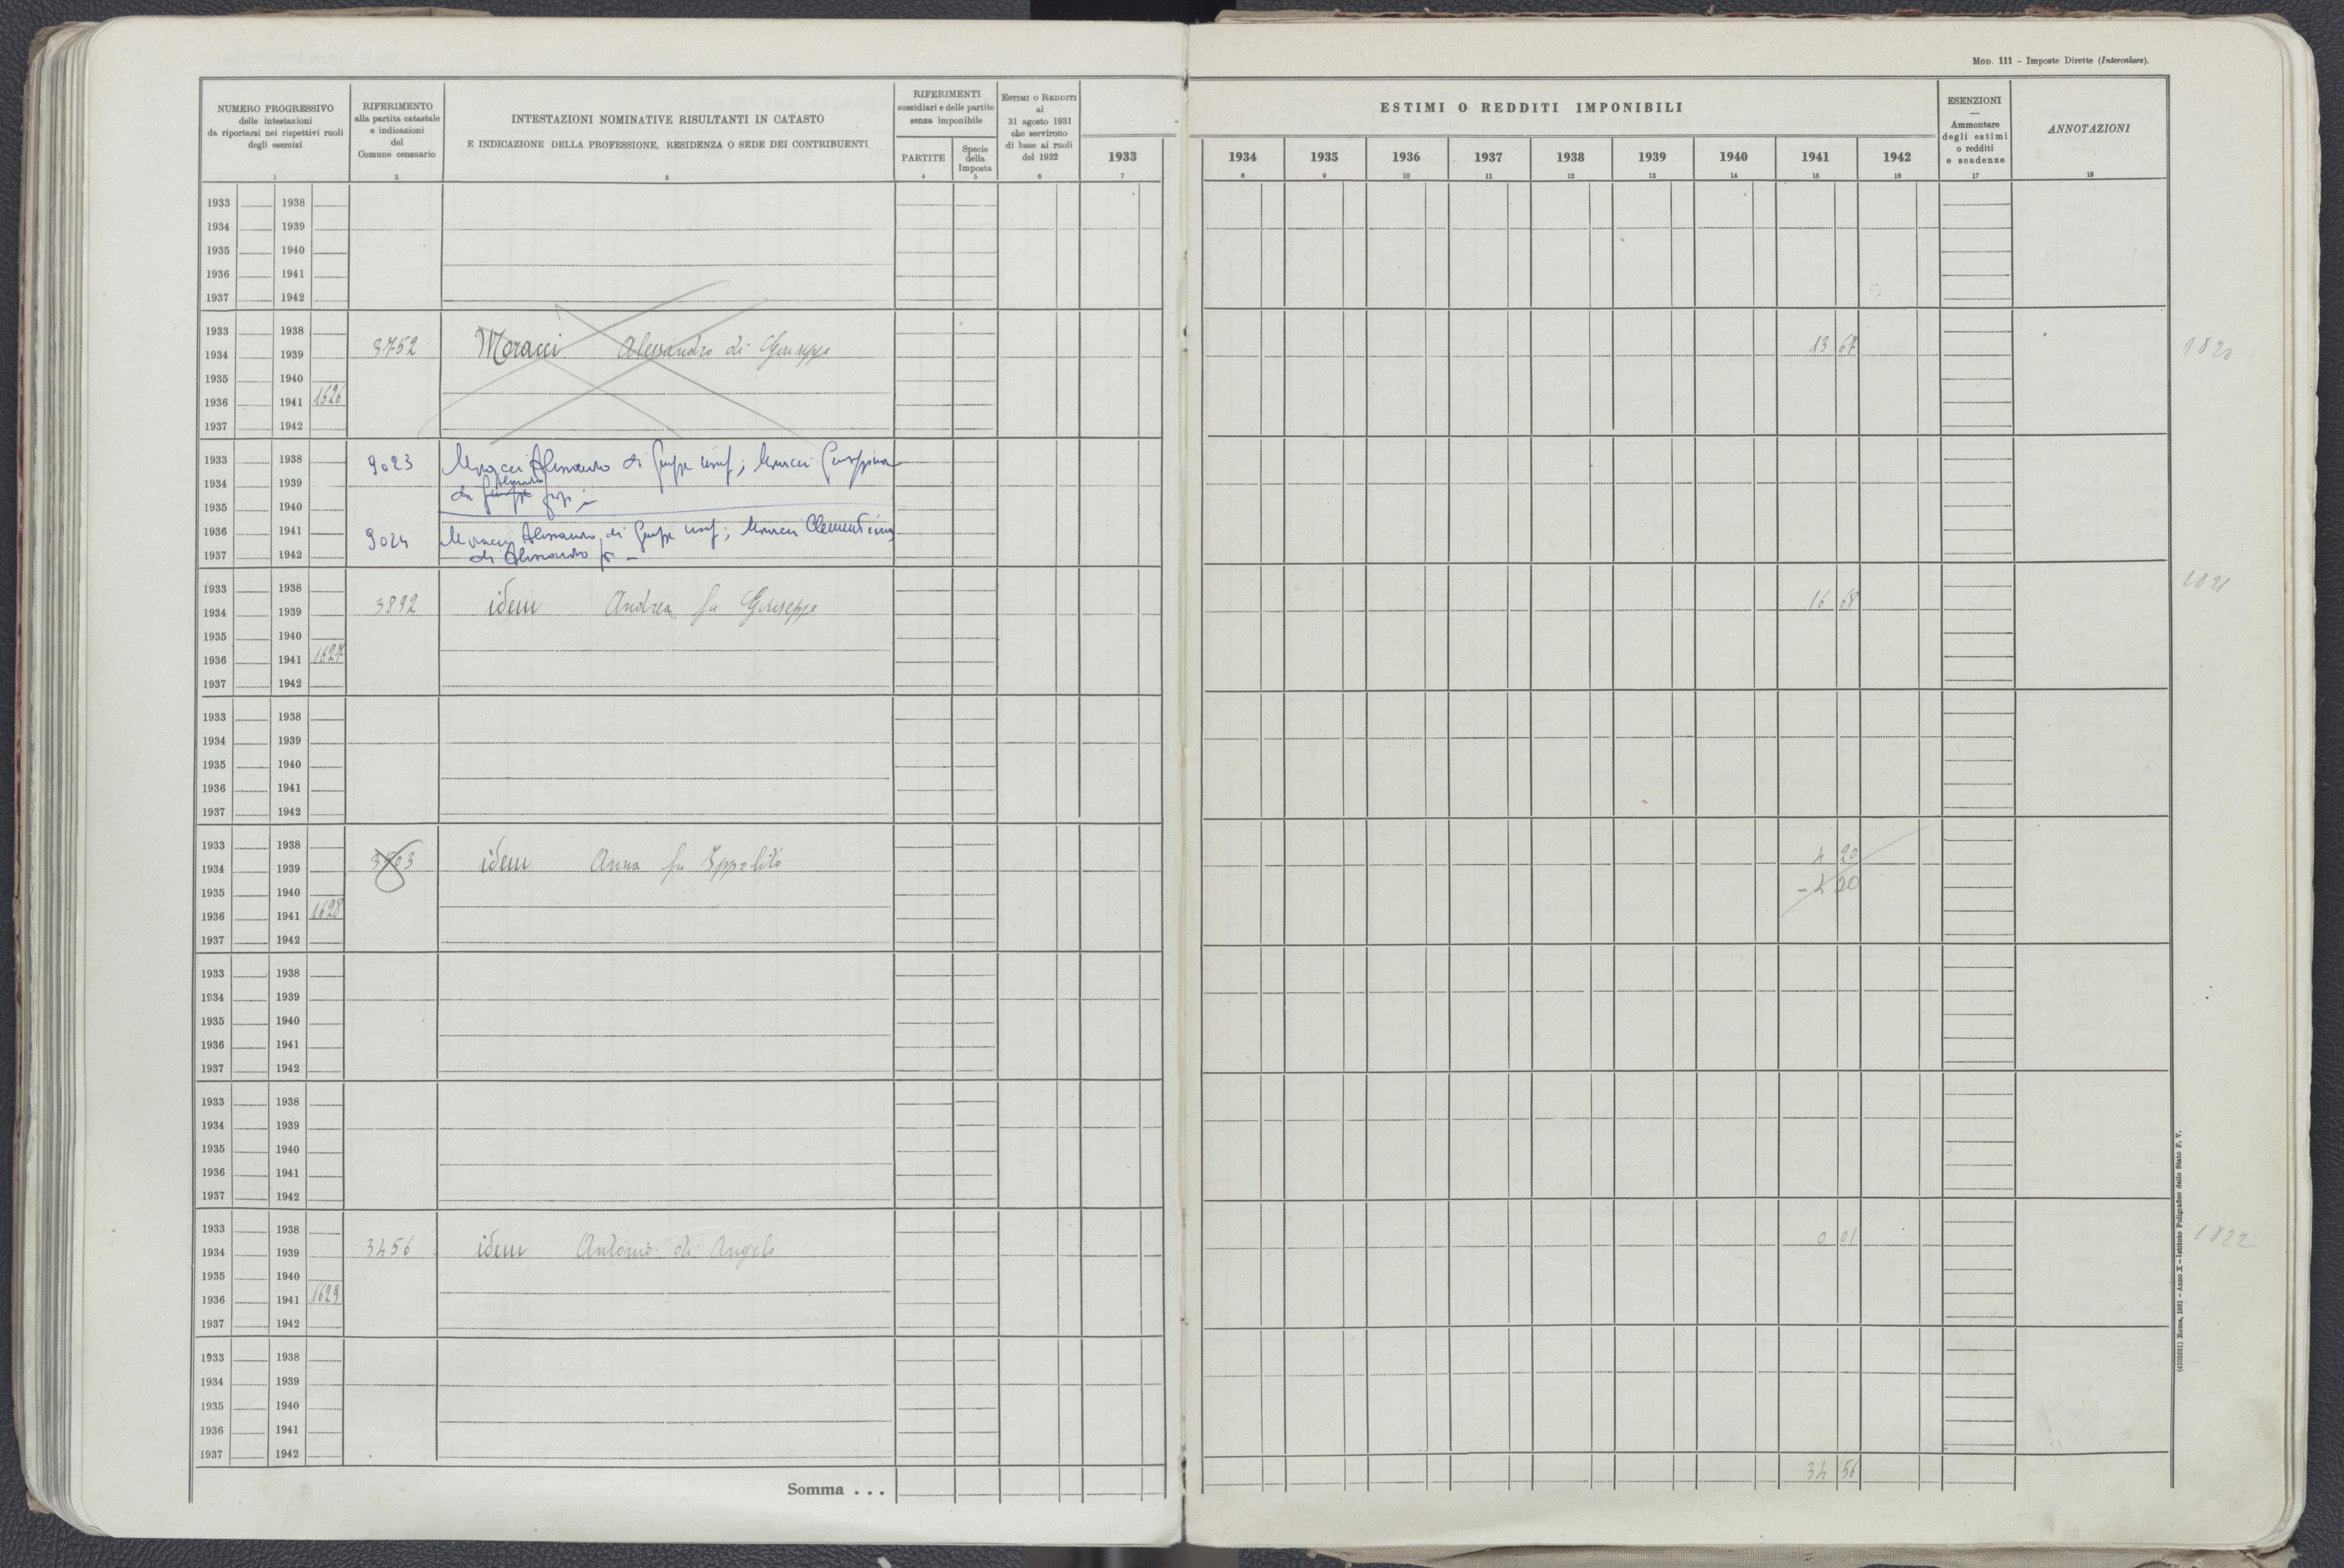 Mod. 111 - Imposte Dirette (Intercalare).
NUMERO PROGRESSIVO
delle intestazioni
da riportarsi nei rispettivi ruoli
degli esercizi
1
RIFERIMENTO
alla partita catastale
e indicazioni
del
Comune censuario
2
INTESTAZIONI NOMINATIVE RISULTANTI IN CATASTO
E INDICAZIONE DELLA PROFESSIONE, RESIDENZA O SEDE DEI CONTRIBUENTI
3
RIFERIMENTI
sussidiari e delle partite
senza imponibile
PARTITE
4
Specie
della
Imposta
5
Estimi o Redditi
al
31 agosto 1931
che servirono
di base ai ruoli
del 1932
6
ESTIMI O REDDITI IMPONIBILI
1933 1934 1935 1936 1937 1938 1939 1940 1941 1942
7 8 9 10 11 12 13 14 15 16
ESENZIONI
—
Ammontare
degli estimi
o redditi
e scadenze
17
ANNOTAZIONI
18
1933 1938
1934 1939
1935 1940
1936 1941
1937 1942
1933 1938
1934 1939 3752 Moracci Alessandro di Giuseppe 13 67
1935 1940
1936 1941 1626
1937 1942
1933 1938 9023 Moracci Alessandro di Giuseppe usuf; Moracci Giuseppina
1934 1939 Alessandro
1935 1940
1936 1941 9024 Moracci Alessandro di Giuseppe usuf; Moracci Clementina
1937 1942 di Alessandro
1933 1938 1821
1934 1939 3892 idem Andrea fu Giuseppe 16 68
1935 1940
1936 1941 1627
1937 1942
1933 1938
1934 1939
1935 1940
1936 1941
1937 1942
1933 1938
1934 1939 idem Anna fu Ippolito 4 20
1935 1940 - 4 20
1936 1941 1628
1937 1942
1933 1938
1934 1939
1935 1940
1936 1941
1937 1942
1933 1938
1934 1939
1935 1940
1936 1941
1937 1942
1933 1938
1934 1939 3456 idem Antonio di Angelo 0 01 1822
1935 1940
1936 1941 1629
1937 1942
1933 1938
1934 1939
1935 1940
1936 1941
1937 1942
Somma . . . 34 56
(4103681) Roma, 1931 - Anno X - Istituto Poligrafico dello Stato P. V.